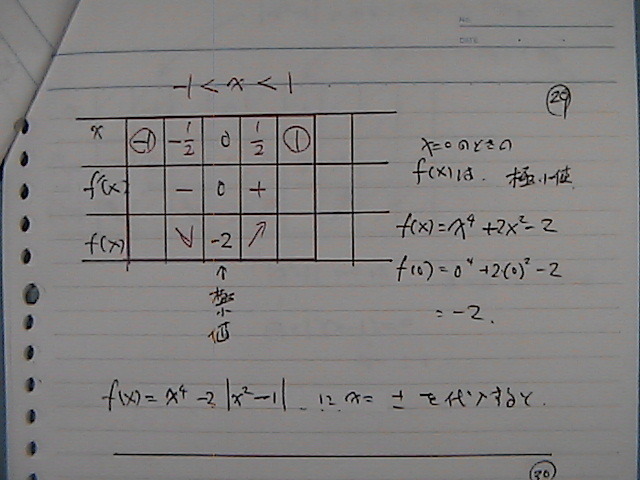 NO.
DATE
-1 < x < 1
29
x -1 -1/2 0 1/2 1
f'(x) - 0 +
f(x) ↘ -2 ↗
↑
極小値
x=0のときの
f(x)は、極小値
f(x)=x⁴+2x²-2
f(0)=0⁴+2(0)²-2
=-2.
f(x)=x⁴-2|x²-1| に x= ± を代入すると.
30